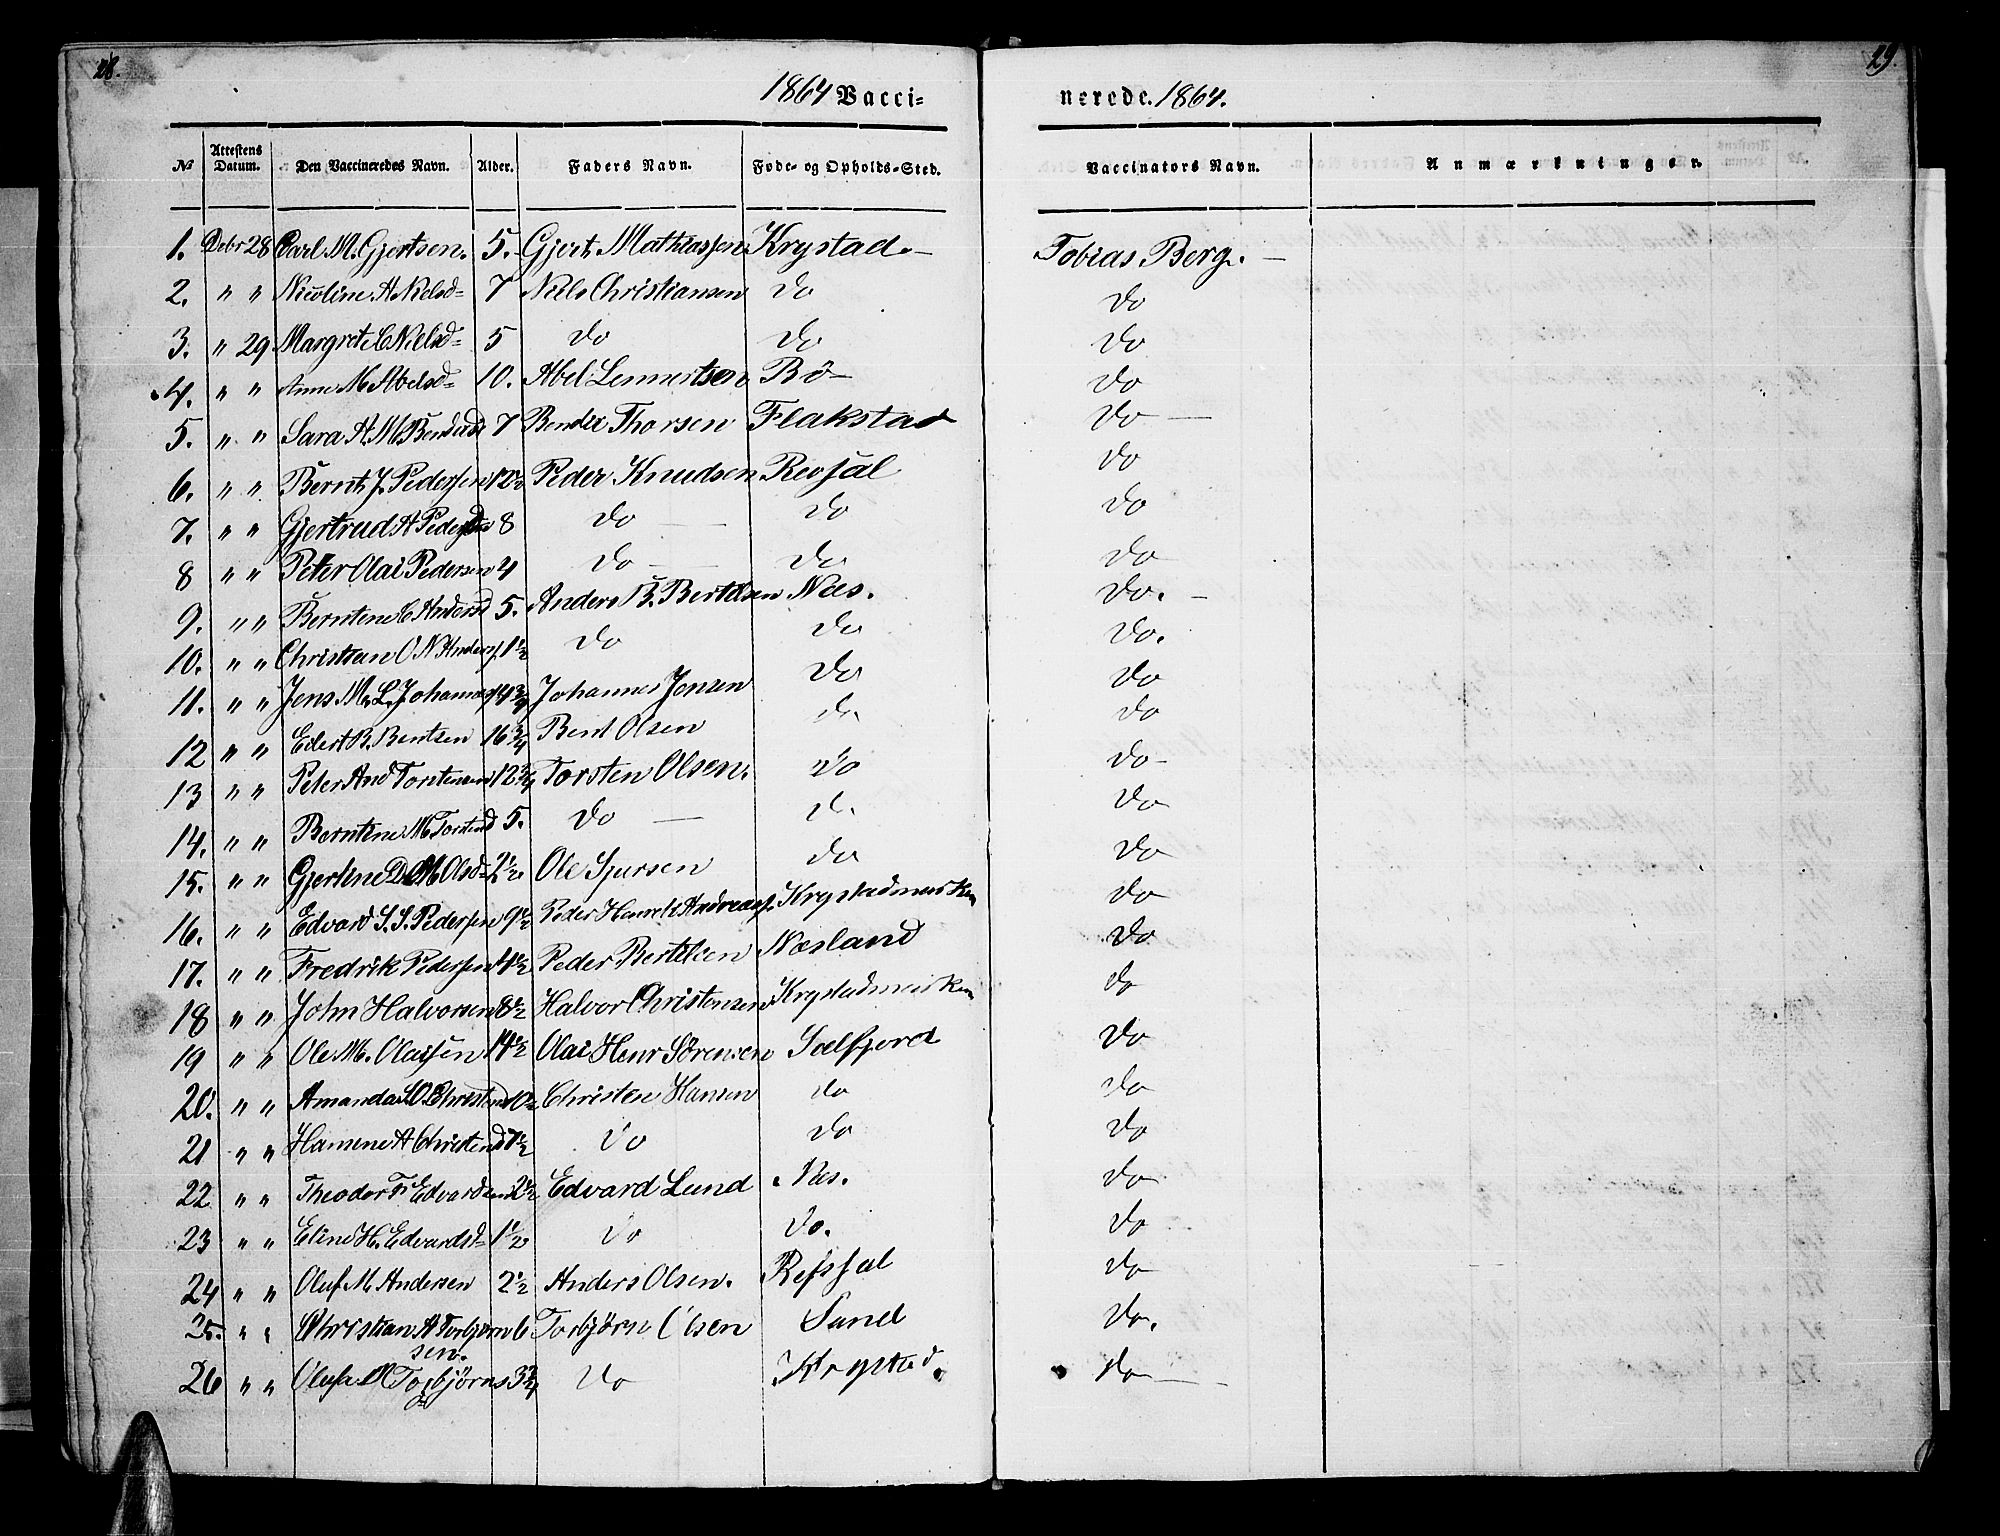 28.
29.
1864 Vacci-
nerede. 1864.
No Attestens Datum. Den Vaccineredes Navn. Alder. Faders Navn. Føde- og Opholds-Sted. Vaccinators Navn. Anmærkninger.
1. Debr 28 Carl M. Gjertsen. 5. Gjert Mathiassen Krystad. Tobias Berg.
2. " " Nicoline A Nielsd 7 Niels Christiansen do do
3. " 29 Margret C Nielsd 5 do do do
4. " " Anne M Abelsd 10. Abel Lennertsen Bö do
5. " " Sara A. M. 7 Bendix Thorsen Flakstad do
6. " " Bernt J. Pedersen 12½ Peder Knudsen Refsal do
7. " " Gjertrud A 8 do do do
8 " " Peter Olai Pedersen 4 do do do
9. " " Berntine C Andersd 5. Anders B. Bertelsen Næs. do.
10. " " Christian O N Anders. 1½ do do do.
11. " " Jens M. L. 14¾ Johannes Jensen do do
12 " " Edert B. Bentsen 16¾ Bent Olsen do do
13 " " Peter And Torstensen 12¾ Torsten Olsen. do do
14. " " Berntine M. Torstend 5. do do do
15. " " Gjertine Olsd 2½ Ole Sjursen do do
16. " " Edvard S. S. Pedersen 9½ Peder Henrik Andreas. Krystadmarken do
17. " " Fredrik Pedersen Peder Bertelsen Næsland do
18 " " John Halvorsen 8½ Halvor Christensen Krystadmarken do
19 " " Ole M. Olaisen 14½ Olai Henr Sörensen Sælfjord do
20. " " Amanda Christend 10½ Christen Hansen do do
21 " " Hansine A Christend 7½ do do do
22 " " Theodor F Edvardsen 2½ Edvard Lund Næs. do
23 " " Eline H. Edvardsd 1½ do do. do
24 " " Oluf M. Andersen 2½ Anders Olsen. Refssal do
25. " " Christian A Torbjørn 6 Torbjørn Olsen Sund do.
sen.
26 " " Olufa M Torbjørns 3¾ do Krystad. do